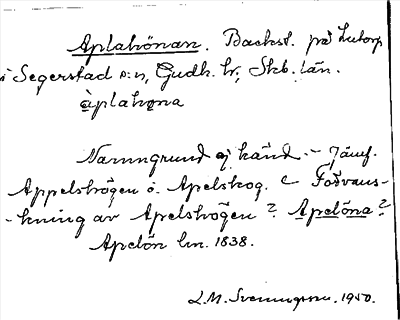 Aplahönan. Backst. på Lutorp
i Segerstad s:n, Gudh. hr, Skb. län.
àplahøna
Namngrund ej känd. – Jämf.
Appelshögen o. Apelskog.
-kning av Apelshögen? Apelöna?
Apelön hn. 1838.
L.M. Svenungsson. 1950.